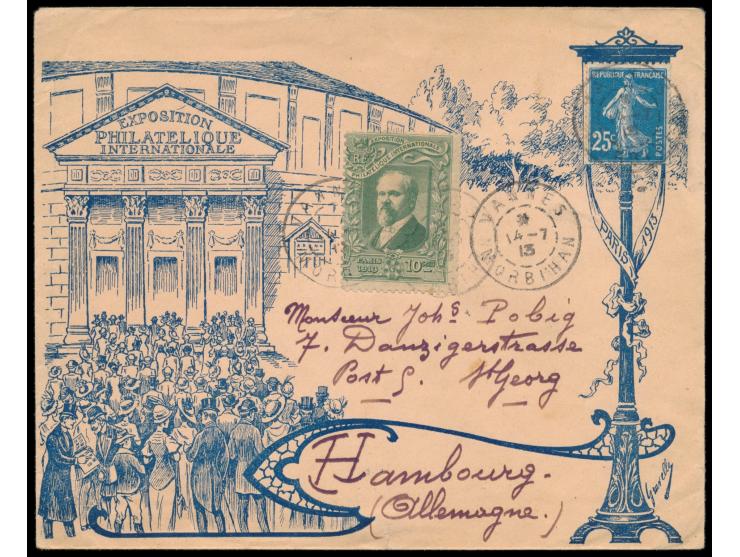 EXPOSITION
PHILATELIQUE
INTERNATIONALE
EXPOSITION
PHILATELIQUE INTERNATIONALE
PARIS
10
REPUBLIQUE FRANÇAISE
25c
POSTES
PARIS 1913
VANNES
14-7
13
MORBIHAN
Monsieur Johs Pobig
7. Danzigerstrasse
Post S. St Georg
Hambourg.
(Allemagne.)